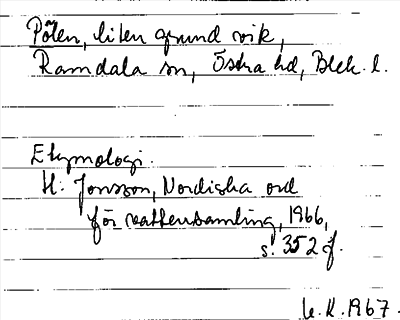 Pölen, liten grund vik,
Ramdala sn, Östra hd, Blek. l.
Etymologi.
H. Jonsson, Nordiska ord
för vattensamling, 1966,
s. 352 f.
U.K. 1967.